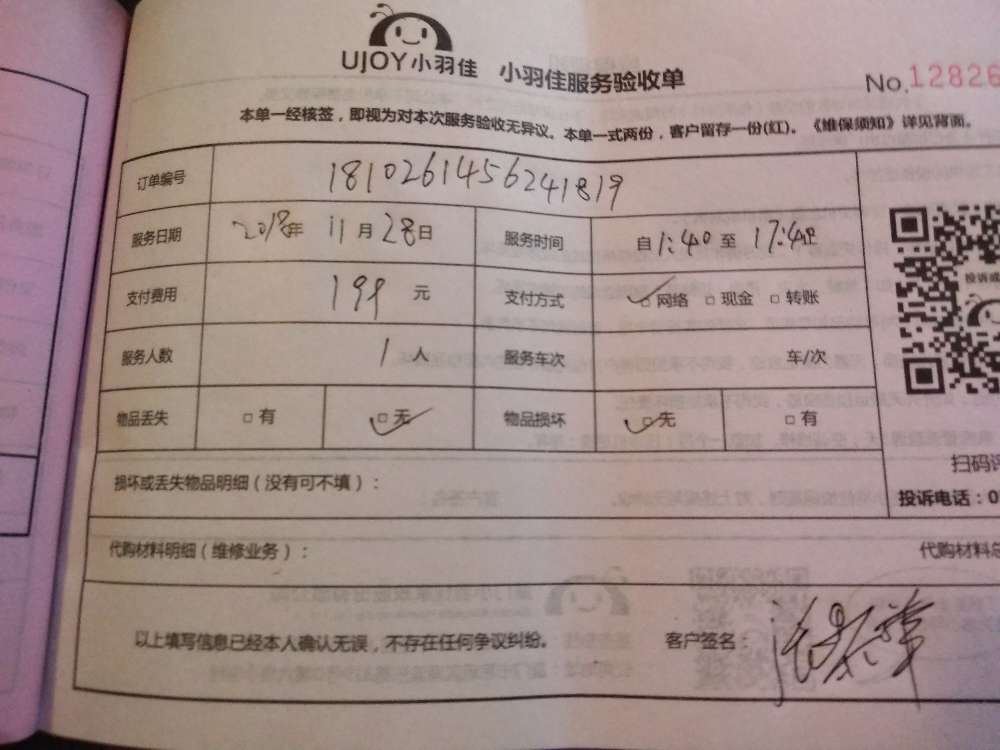 UJOY小羽佳 小羽佳服务验收单 No.12826
本单一经核签，即视为对本次服务验收无异议。本单一式两份，客户留存一份(红)。《维保须知》详见背面。
订单编号 1810261456241819
服务日期 2018年 11月28日 服务时间 自1:40至17:40止
支付费用 199 元 支付方式 □网络 □现金 □转账
投诉或
服务人数 1人 服务车次 车/次
物品丢失 □有 □无 物品损坏 □无 □有
扫码评
损坏或丢失物品明细（没有可不填）：
投诉电话：0
代购材料明细（维修业务）： 代购材料总
以上填写信息已经本人确认无误，不存在任何争议纠纷。 客户签名：